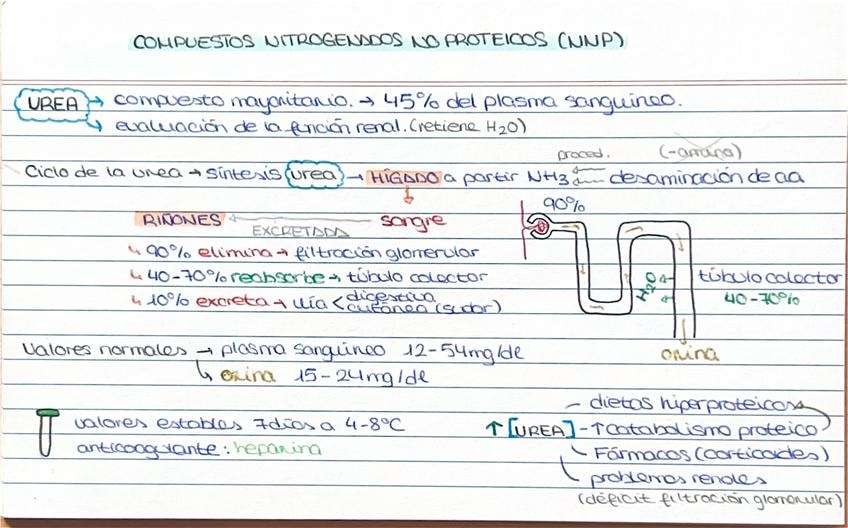 COMPUESTOS NITROGENADOS NO PROTEICOS (NNP)
UREA → compuesto mayoritario. → 45% del plasma sanguíneo.
↳ evaluación de la función renal. (retiene H2O)
proced. (-amina)
Ciclo de la urea → síntesis urea → HÍGADO a partir NH3 ← desaminación de aa
RIÑONES ← EXCRETADA sangre
90%
↳ 90% elimina → filtración glomerular
↳ 40-70% reabsorbe → túbulo colector
↳ 10% excreta → vía < digestiva
cutánea (sudor)
H2O
túbulo colector
40-70%
orina
Valores normales → plasma sanguíneo 12-54mg/dl
↳ orina 15-24mg/dl
valores estables 7días a 4-8ºC
anticoagulante: heparina
↑[UREA]
- dietas hiperproteicas
- ↑catabolismo proteico
- Fármacos (corticoides)
- problemas renales
(déficit filtración glomerular)